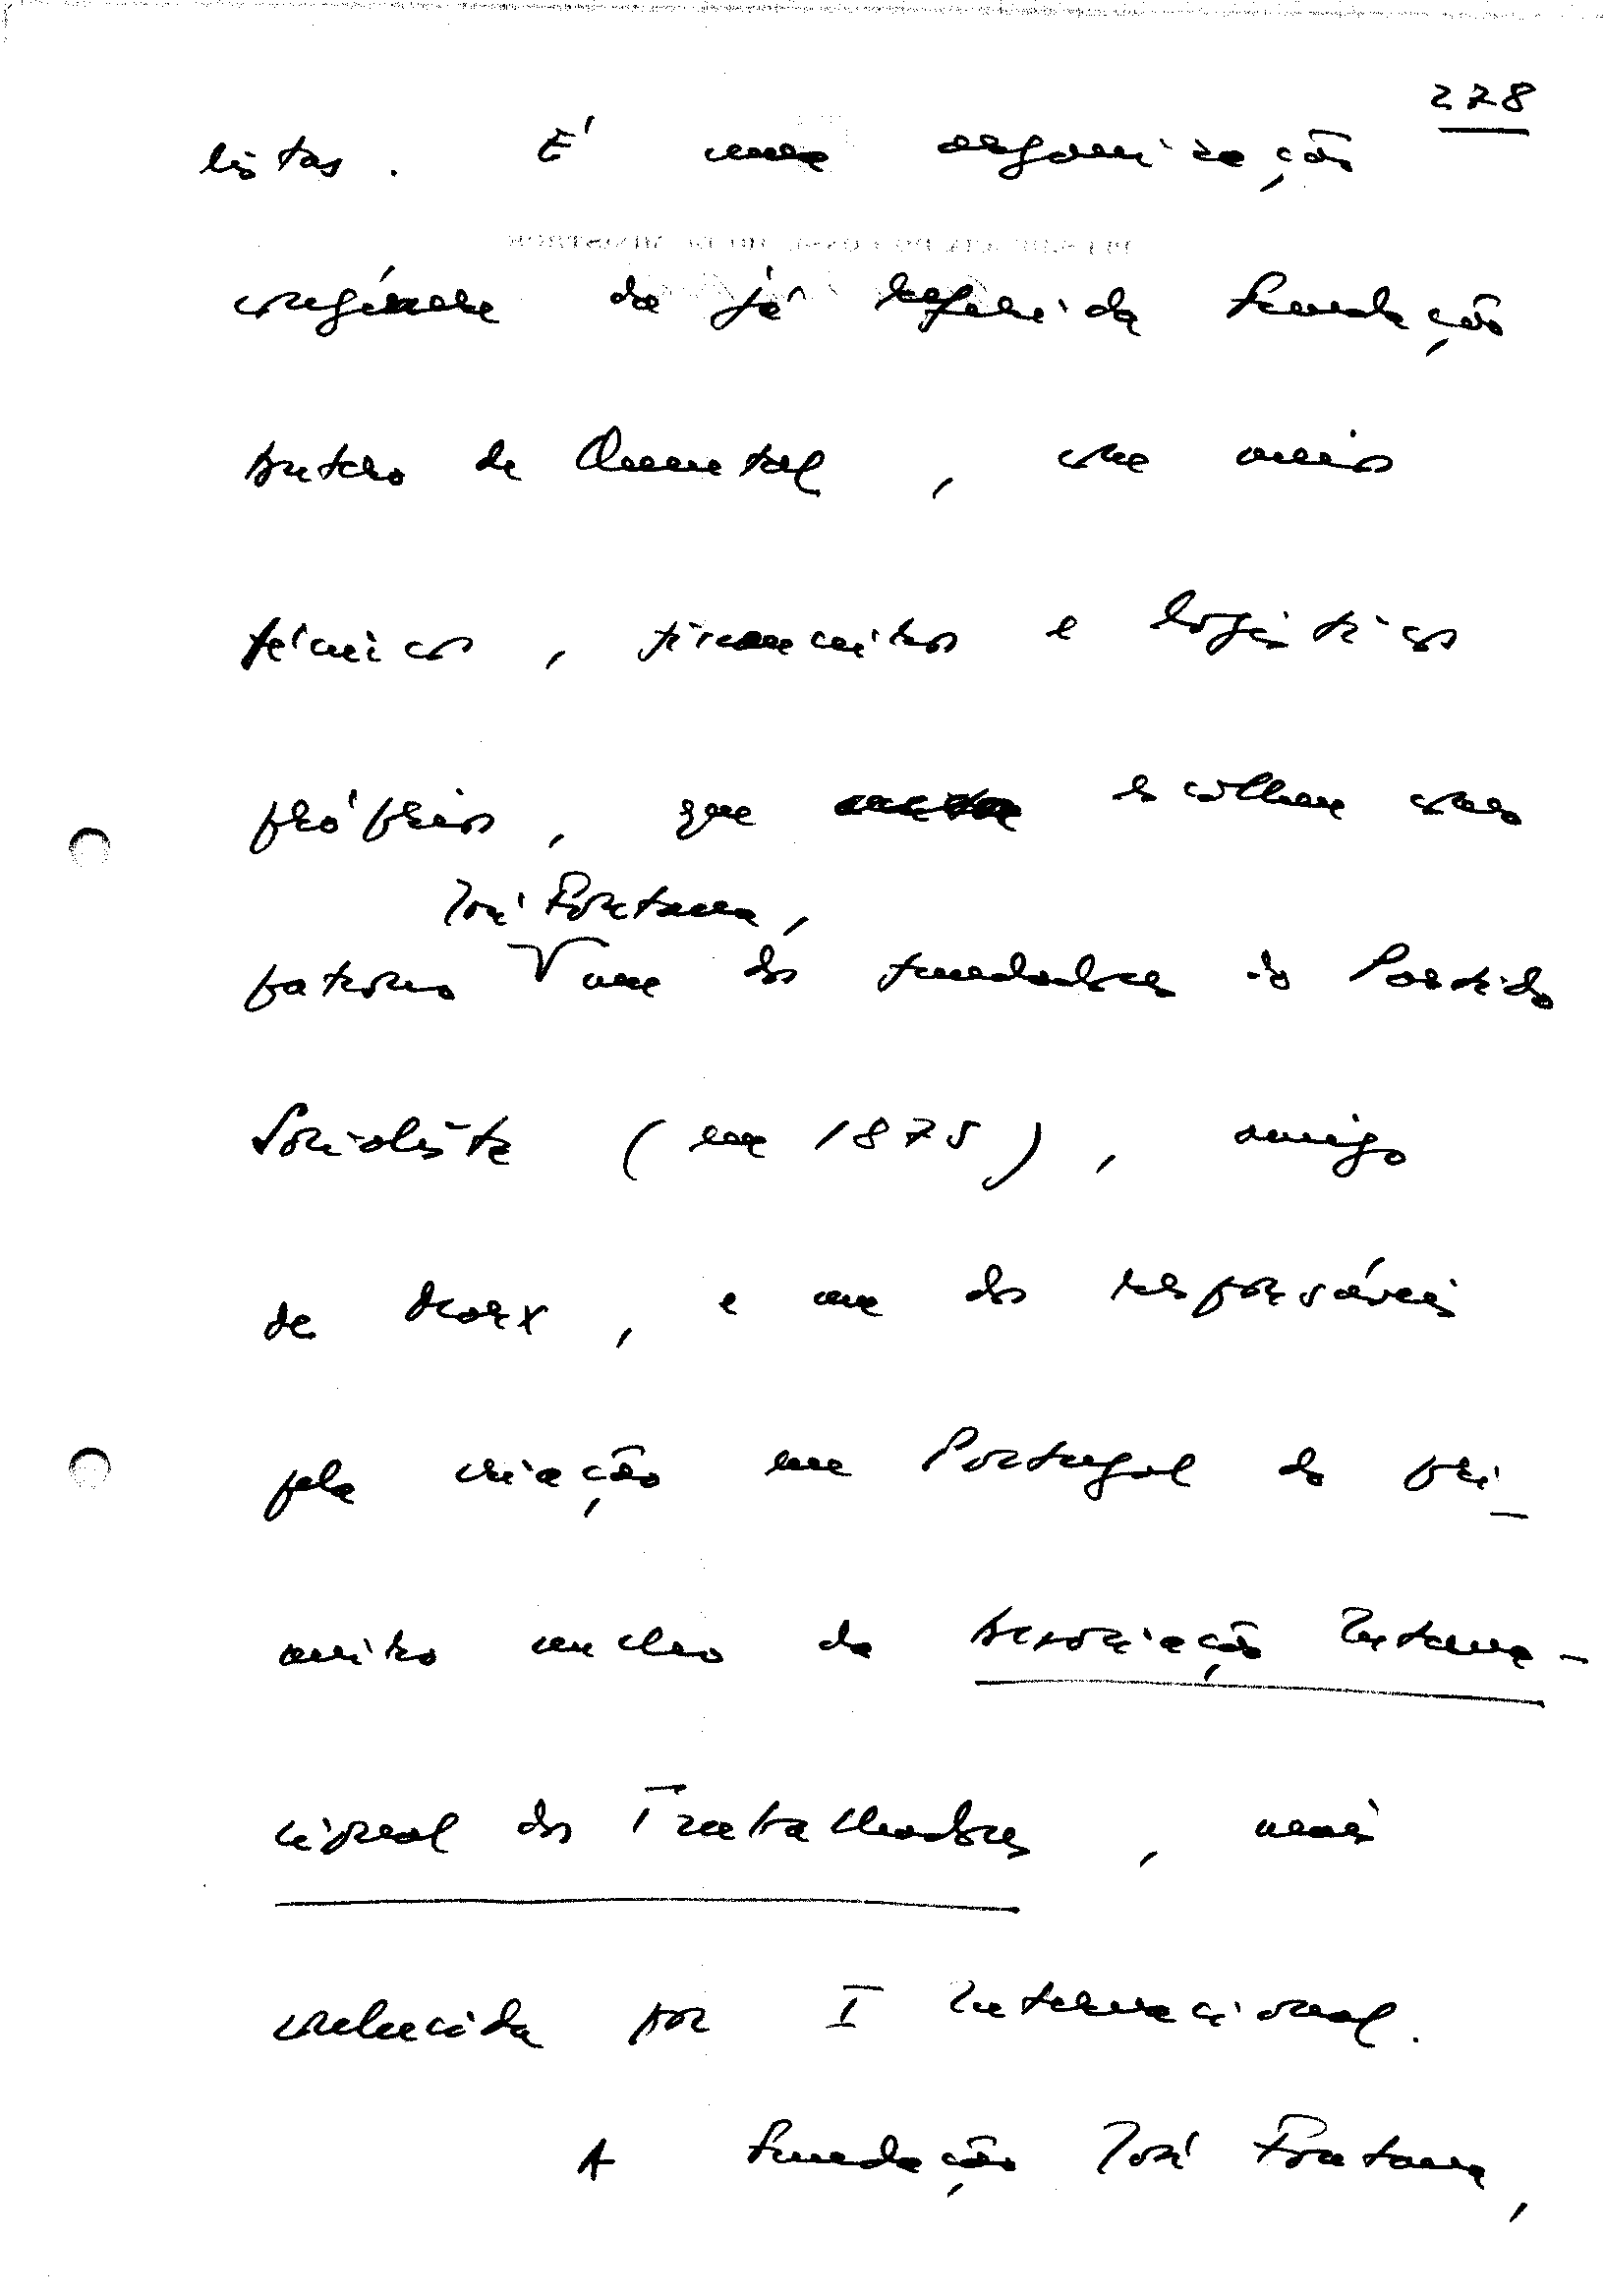 278
listas. É uma organização
congénere da já referida Fundação
Antero de Quental, com meios
técnicos, financeiros e logísticos
próprios, que escolheu como
José Fontana,
patrono um dos fundadores do Partido
Socialista (em 1875), amigo
de Marx, e um dos responsáveis
pela criação em Portugal do pri-
meiro núcleo da Associação Interna-
cional dos Trabalhadores, mais
conhecida por I Internacional.
A Fundação José Fontana,